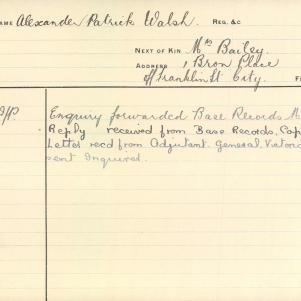 NAME Alexander Patrick Walsh. REG. &C
NEXT OF KIN Mrs Bailey.
ADDRESS 1 Bron Place
off Franklin St City.
Enquiry forwarded Base Records M
Reply received from Base Records, Cap
Letter recd from Adjutant General, Victoria
sent Inquired.